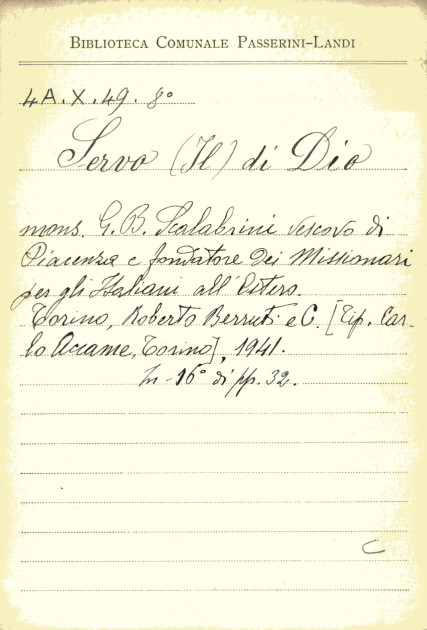 BIBLIOTECA COMUNALE PASSERINI-LANDI
4A.X.49. 8°
Servo (Il) di Dio
mons. G.B. Scalabrini vescovo di
Piacenza e fondatore dei Missionari
per gli Italiani all'Estero.
Torino, Roberto Berruti e C. [Tip. Car-
lo Accame, Torino], 1941.
In-16° di pp. 32.
C